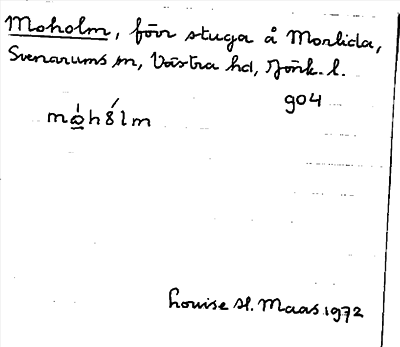 Moholm, förr stuga å Morlida,
Svenarums sn, Västra hd, Jönk. l.
904
mo̱̍h8́lm
Louise H. Maas 1972